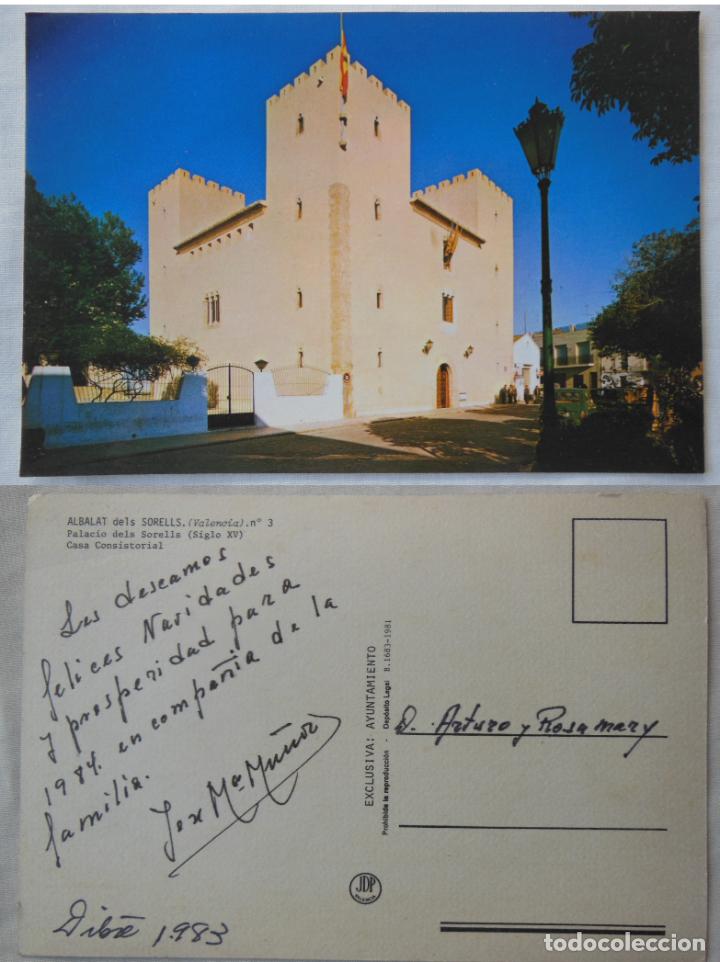 ALBALAT dels SORELLS.(Valencia).nº 3
Palacio dels Sorells (Siglo XV)
Casa Consistorial
Les deseamos
felices Navidades
y prosperidad para
1984. en compañía de la
familia.
Mª Muñoz
1983
EXCLUSIVA: AYUNTAMIENTO
Prohibida la reproducción - Depósito Legal B.1683-1981
D. Arturo y Rosa mary
JDP
VALENCIA
todocoleccion